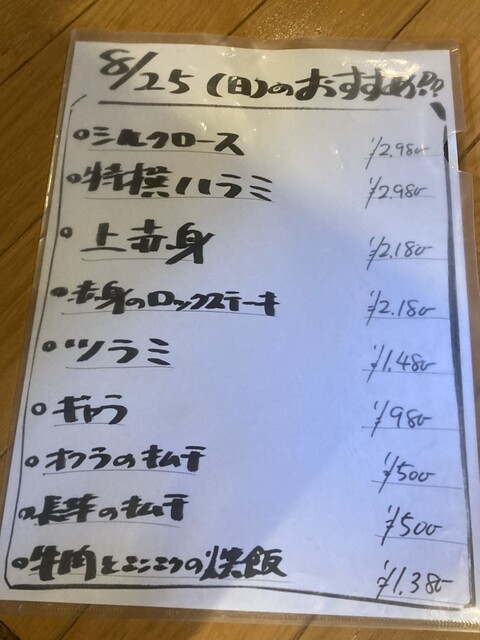 8/25(日)のおすすめ!?
シルクロース ¥2.980
特撰ハラミ ¥2.980
上赤身 ¥2.180
赤身のロックステーキ ¥2.180
ツラミ ¥1.480
ギャラ ¥980
オクラのキムチ ¥500
長芋のキムチ ¥500
牛肉とニンニクの焼飯 ¥1.380